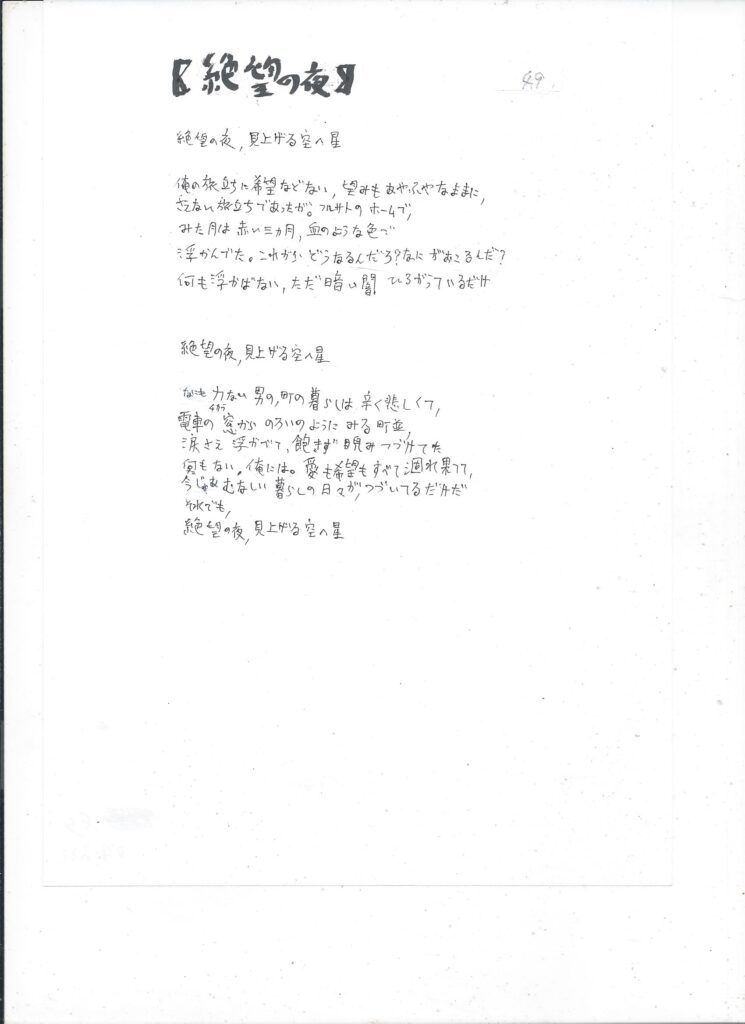 【絶望の夜】
49.
絶望の夜,見上げる空へ星
俺の旅立ちに希望などない,望みもあやふやなままに,
さえない旅立ちであったが。フルサトのホームで,
みた月は赤い三カ月,血のような色で
浮かんでた。これからどうなるんだろ?なにがおこるんだ?
何も浮かばない,ただ暗い闇 ひろがっているだけ
絶望の夜,見上げる空へ星
なにも力ない男の,町の暮らしは辛く悲しくて,
電車の窓から のろいのようにみる町並,
涙さえ浮かべて,飽きず睨みつづけてた
何もない。俺には。愛も希望もすべて涸れ果てて,
今じゃあむなしい暮らしの日々が,つづいてるだけだ
それでも,
絶望の夜,見上げる空へ星